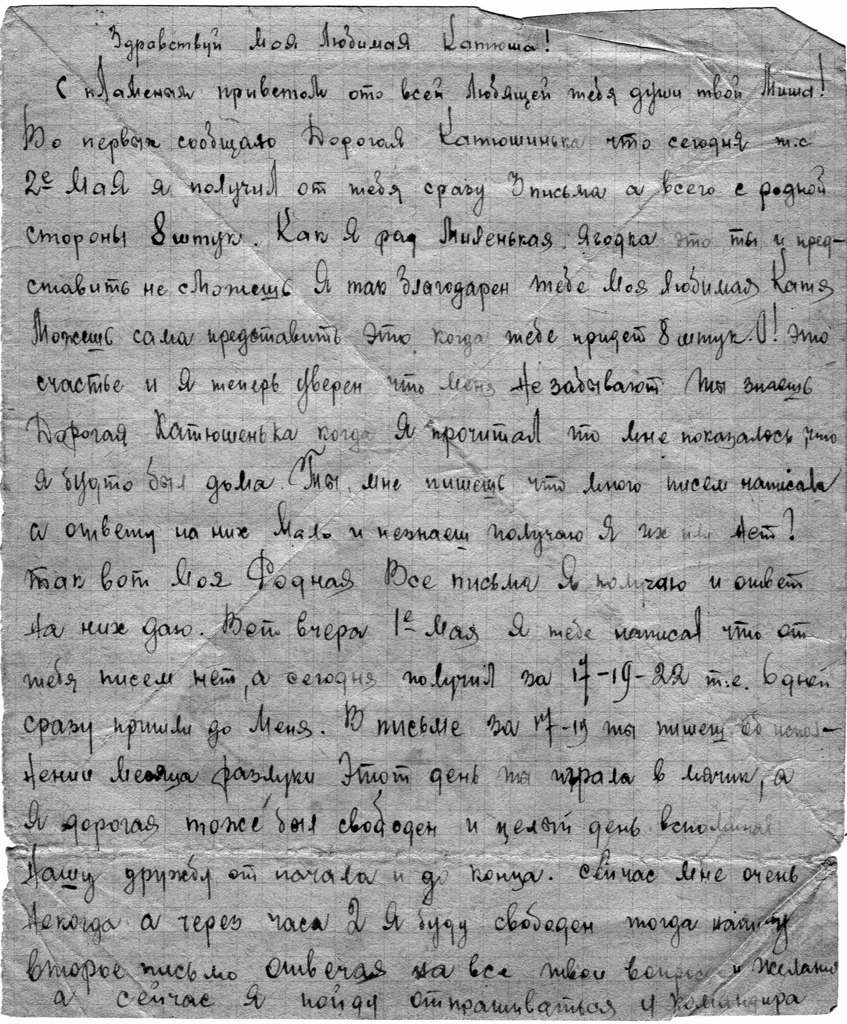 Здравствуй Моя Любимая Катюша!
С пламеная приветом ото всей Любящей тебя души твой Миша!
Во первых сообщаю Дорогая Катюшинька что сегодня т.с
2е Мая я получил от тебя сразу 3 письма а всего с родной
стороны 8 штук. Как Я рад Миленькая Ягодка это ты и пред-
ставить не сможешь Я так благодарен тебе Моя Любимая Катя
Можешь сама представить это когда тебе придет 8 штук. О! это
счастье и Я теперь уверен что меня не забывают ты знаешь
Дорогая Катюшенька когда Я прочитал то мне показалось что
я будто был дома. Ты мне пишешь что много писем написала
а ответу на них мало и незнаеш получаю Я их или нет?
так вот Моя Родная Все письма Я получаю и ответ
на них даю. Вот вчера 1е Мая Я тебе написал что от
тебя писем нет, а сегодня получил за 17-19-22 т.е. 6 дней
сразу пришли до Меня. В письме за 17-19 ты пишеш об испол-
нении месяца разлуки Этот день ты играла в мячик, а
Я дорогая тоже был свободен и целый день вспоминал
нашу дружбу от начала и до конца. сейчас мне очень
некогда а через часа 2 Я буду свободен тогда напишу
второе письмо отвечая на все твои вопросы и желания
а сейчас Я пойду отпрашиваться у командира